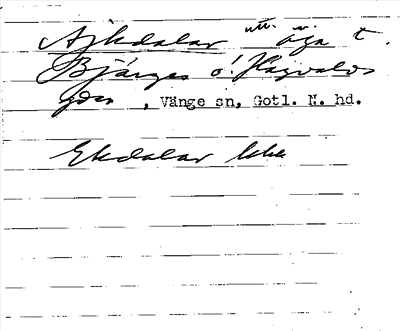 Ajkdalar utt. n. äga t.
Bjärges o. Hagvalds
gdar, Vänge sn, Gotl. N. hd.
Ekdalar